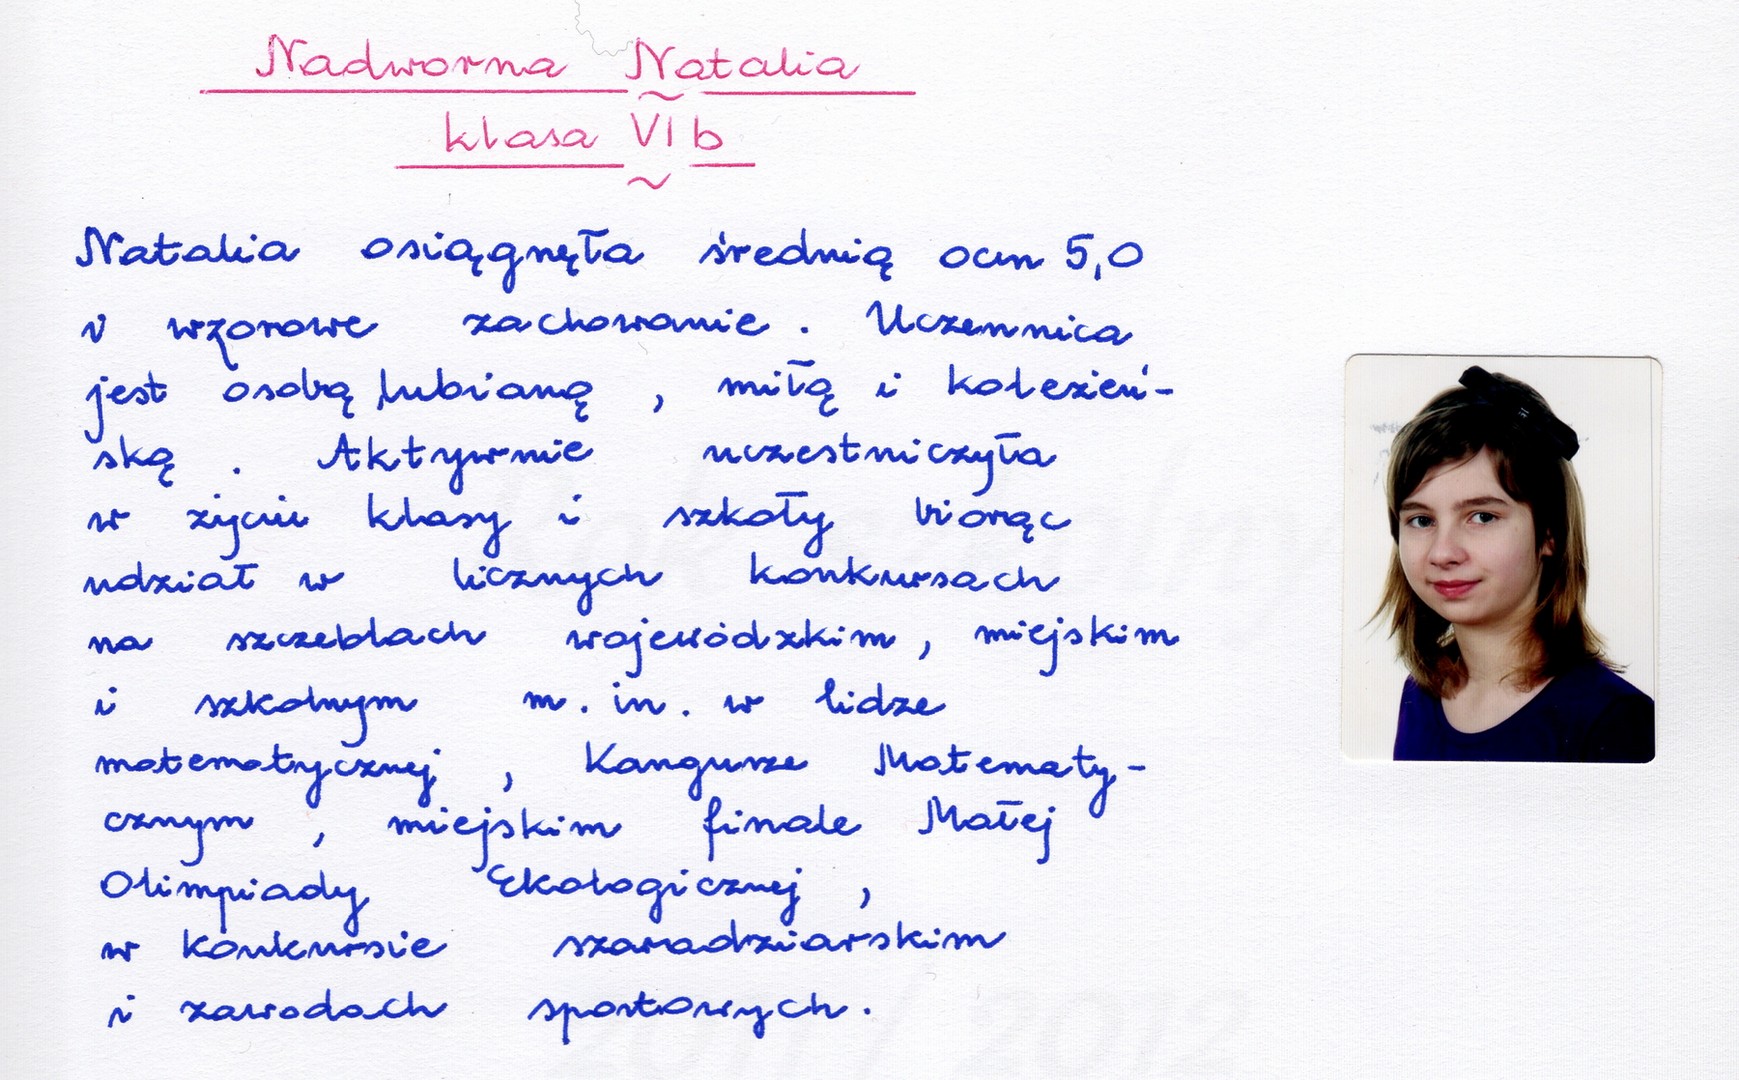 Nadworna Natalia
klasa VI b
Natalia osiągnęła średnią ocen 5,0
i wzorowe zachowanie. Uczennica
jest osobą lubianą, miłą i koleżeń-
ską. Aktywnie uczestniczyła
w życiu klasy i szkoły biorąc
udział w licznych konkursach
na szczeblach wojewódzkim, miejskim
i szkolnym m. in. w lidze
matematycznej, Kangurze Matematy-
cznym, miejskim finale Małej
Olimpiady Ekologicznej,
w konkursie szaradziarskim
i zawodach sportowych.